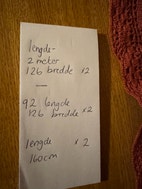 lengde-
2 meter
126 bredde x2
92 lengde
126 bredde x2
lengde x 2
160cm